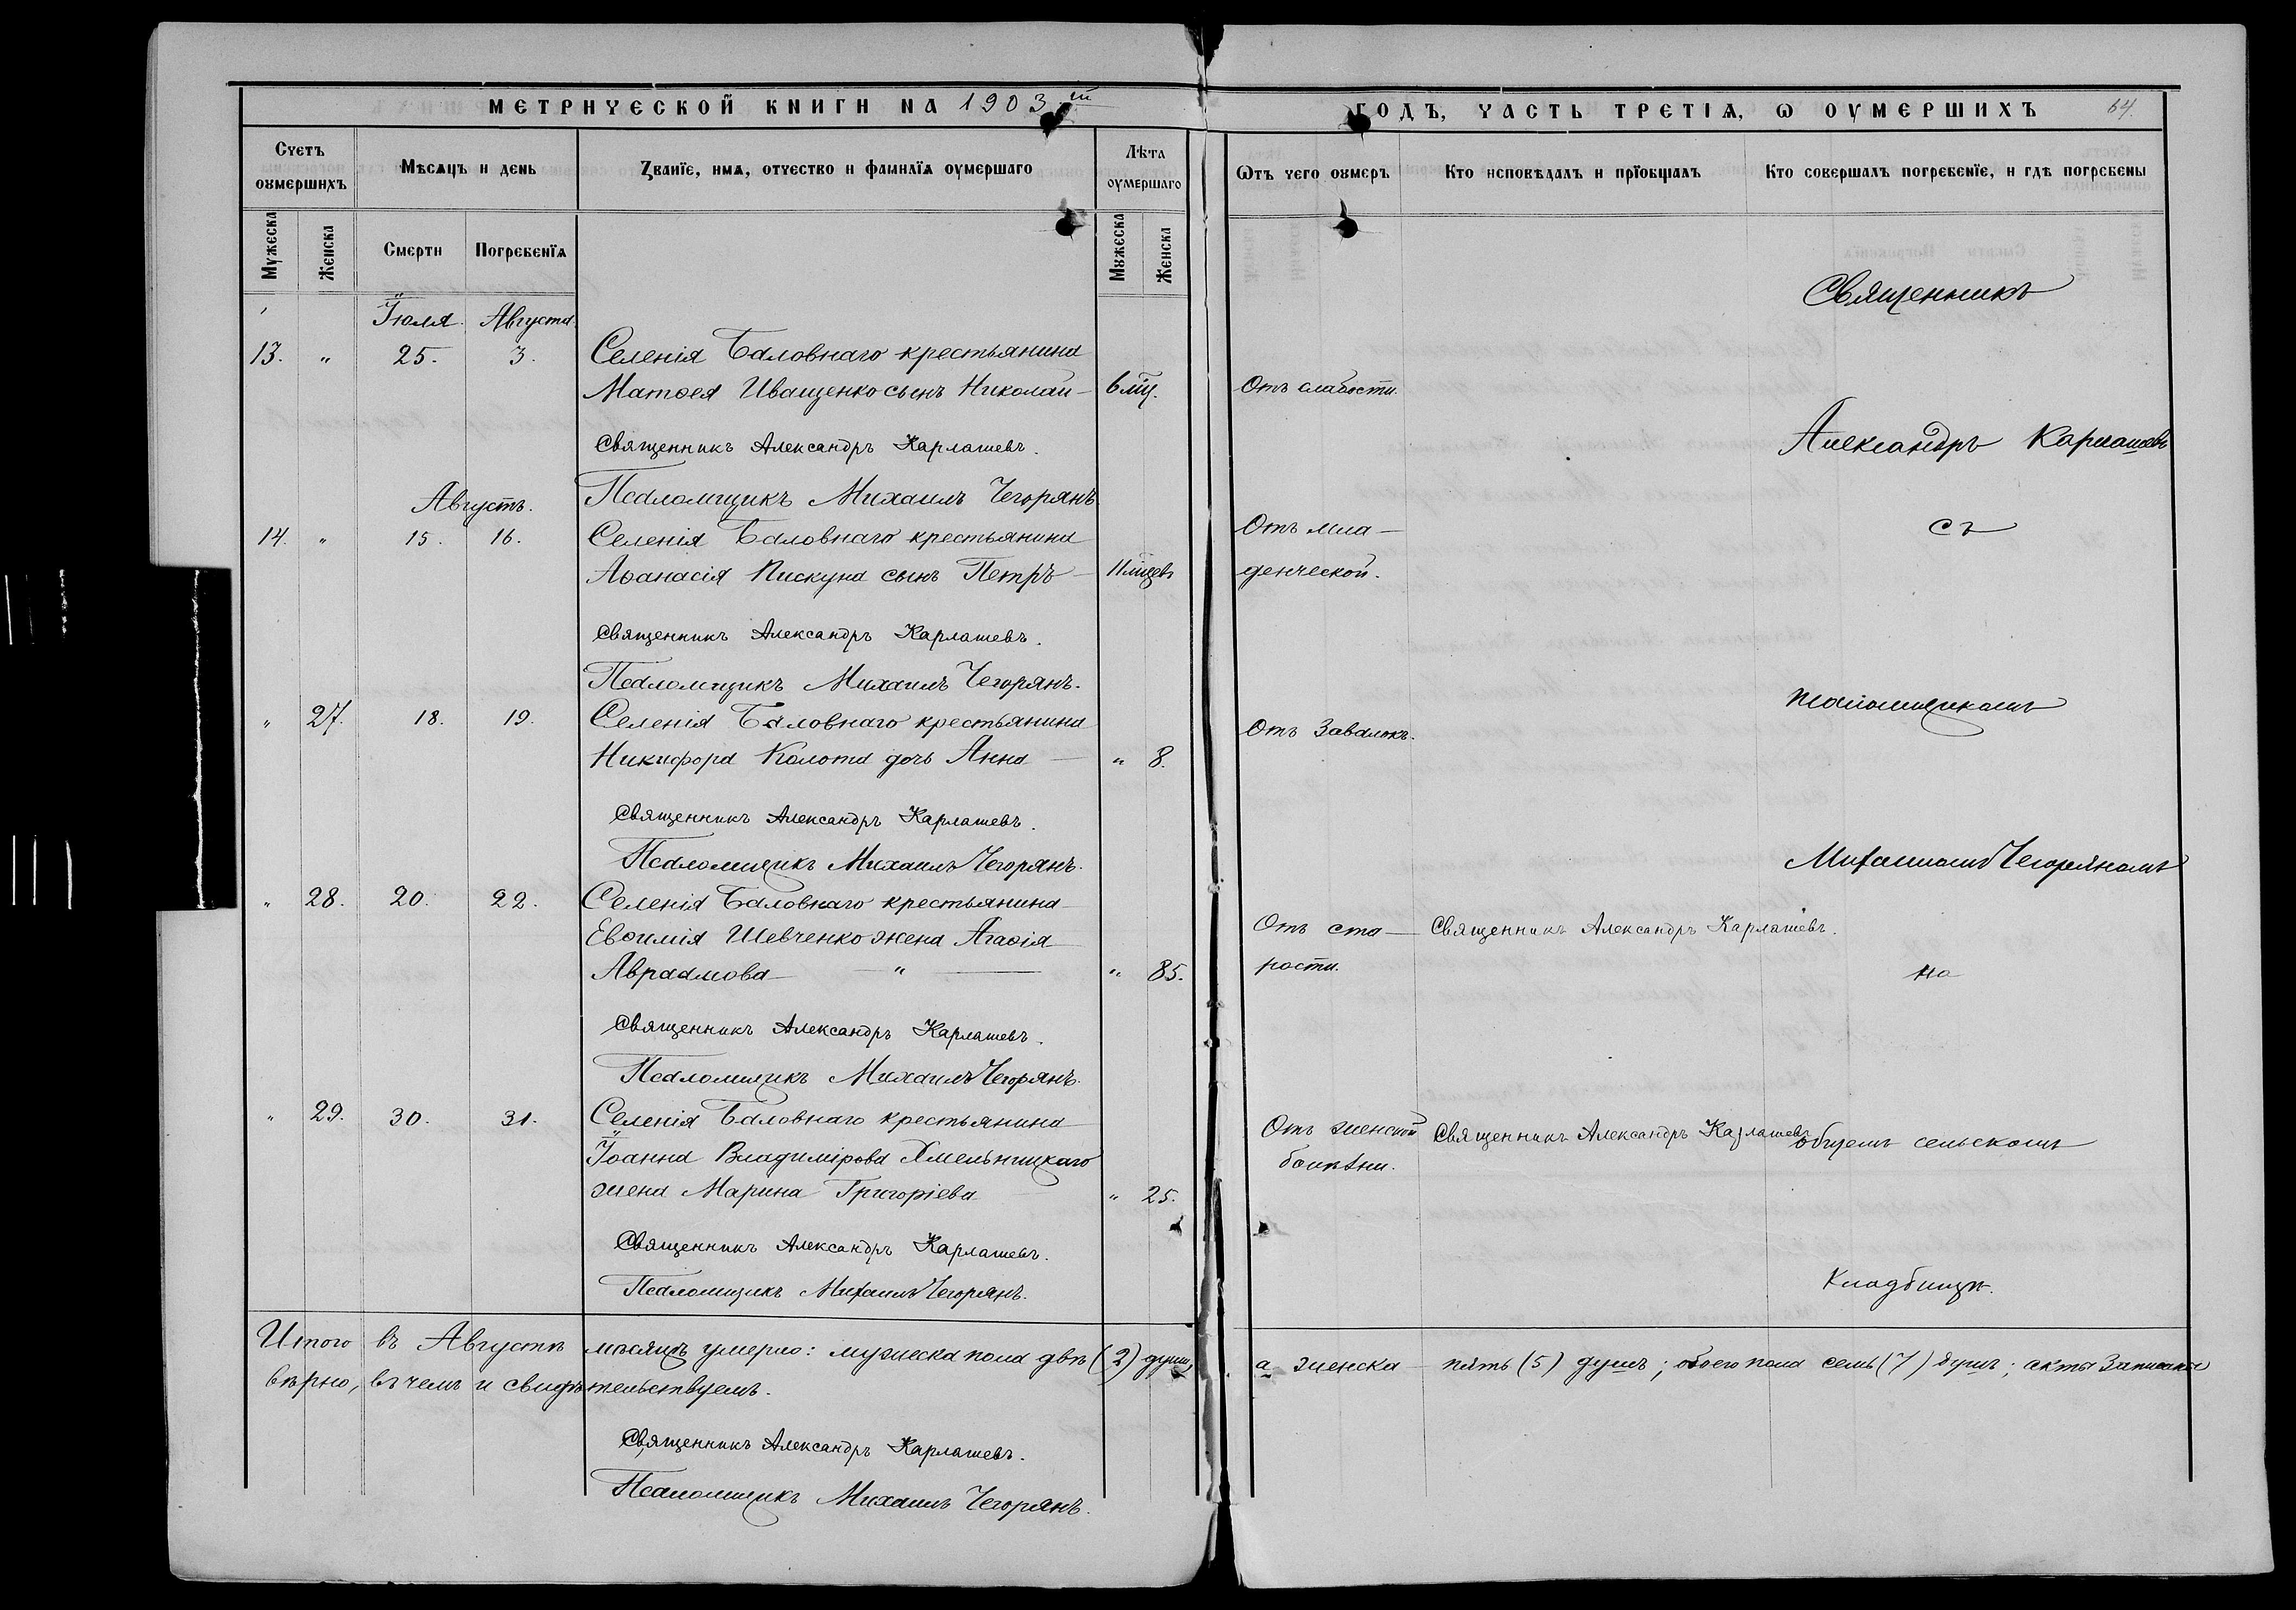 МЕТРИЧЕСКОЙ КНИГИ НА 1903 й ГОДЪ, ЧАСТЬ ТРЕТІѦ, Ѡ ОУМЕРШИХЪ 64.
Счетъ оумершихъ
Мѣсѧцъ и день
Званїе, имѧ, отчество и фамилїѧ оумершаго
Лѣта оумершаго
Ѿтъ чего оумеръ
Кто исповѣдалъ и прїобщалъ
Кто совершалъ погребенїе, и гдѣ погребены
Мужеска
Женска
Смерти
Погребенїѧ
Мужеска
Женска
Іюля. Августа.
13. " 25. 3. Селенія Баловнаго крестьянина
Матѳея Иващенко сынъ Николай — 6 мц. Отъ слабости.
Священникъ Александръ Карлашевъ.
Псаломщикъ Михаилъ Чегорянъ.
Августъ.
14. " 15. 16. Селенія Баловнаго крестьянина Отъ мла—
Аѳанасія Пискуна сынъ Петръ — 11 мцевъ денческой.
Священникъ Александръ Карлашевъ.
Псаломщикъ Михаилъ Чегорянъ.
" 27. 18. 19. Селенія Баловнаго крестьянина
Никифора Колота дочь Анна — " 8. Отъ Завалокъ.
Священникъ Александръ Карлашевъ.
Псаломщикъ Михаилъ Чегорянъ.
" 28. 20. 22. Селенія Баловнаго крестьянина
Евѳимія Шевченко жена Агаѳія Отъ ста— Священникъ Александръ Карлашевъ.
Авраамова — " — " 85. рости.
Священникъ Александръ Карлашевъ.
Псаломщикъ Михаилъ Чегорянъ.
" 29. 30. 31. Селенія Баловнаго крестьянина
Іоанна Владимірова Хмельницкаго Отъ женской Священникъ Александръ Карлашевъ
жена Марина Григоріева " 25. болѣзни.
Священникъ Александръ Карлашевъ.
Псаломщикъ Михаилъ Чегорянъ.
Священникъ
Александръ Карлашевъ
съ
псаломщикомъ
Михаиломъ Чегоряномъ
на
общемъ сельскомъ
кладбищѣ.
Итого въ Августѣ мѣсяцѣ умерло: мужеска пола двѣ (2) души, а женска — пять (5) душъ; обоего пола семь (7) душъ; акты записаны
вѣрно, въ чемъ и свидѣтельствуемъ.
Священникъ Александръ Карлашевъ.
Псаломщикъ Михаилъ Чегорянъ.